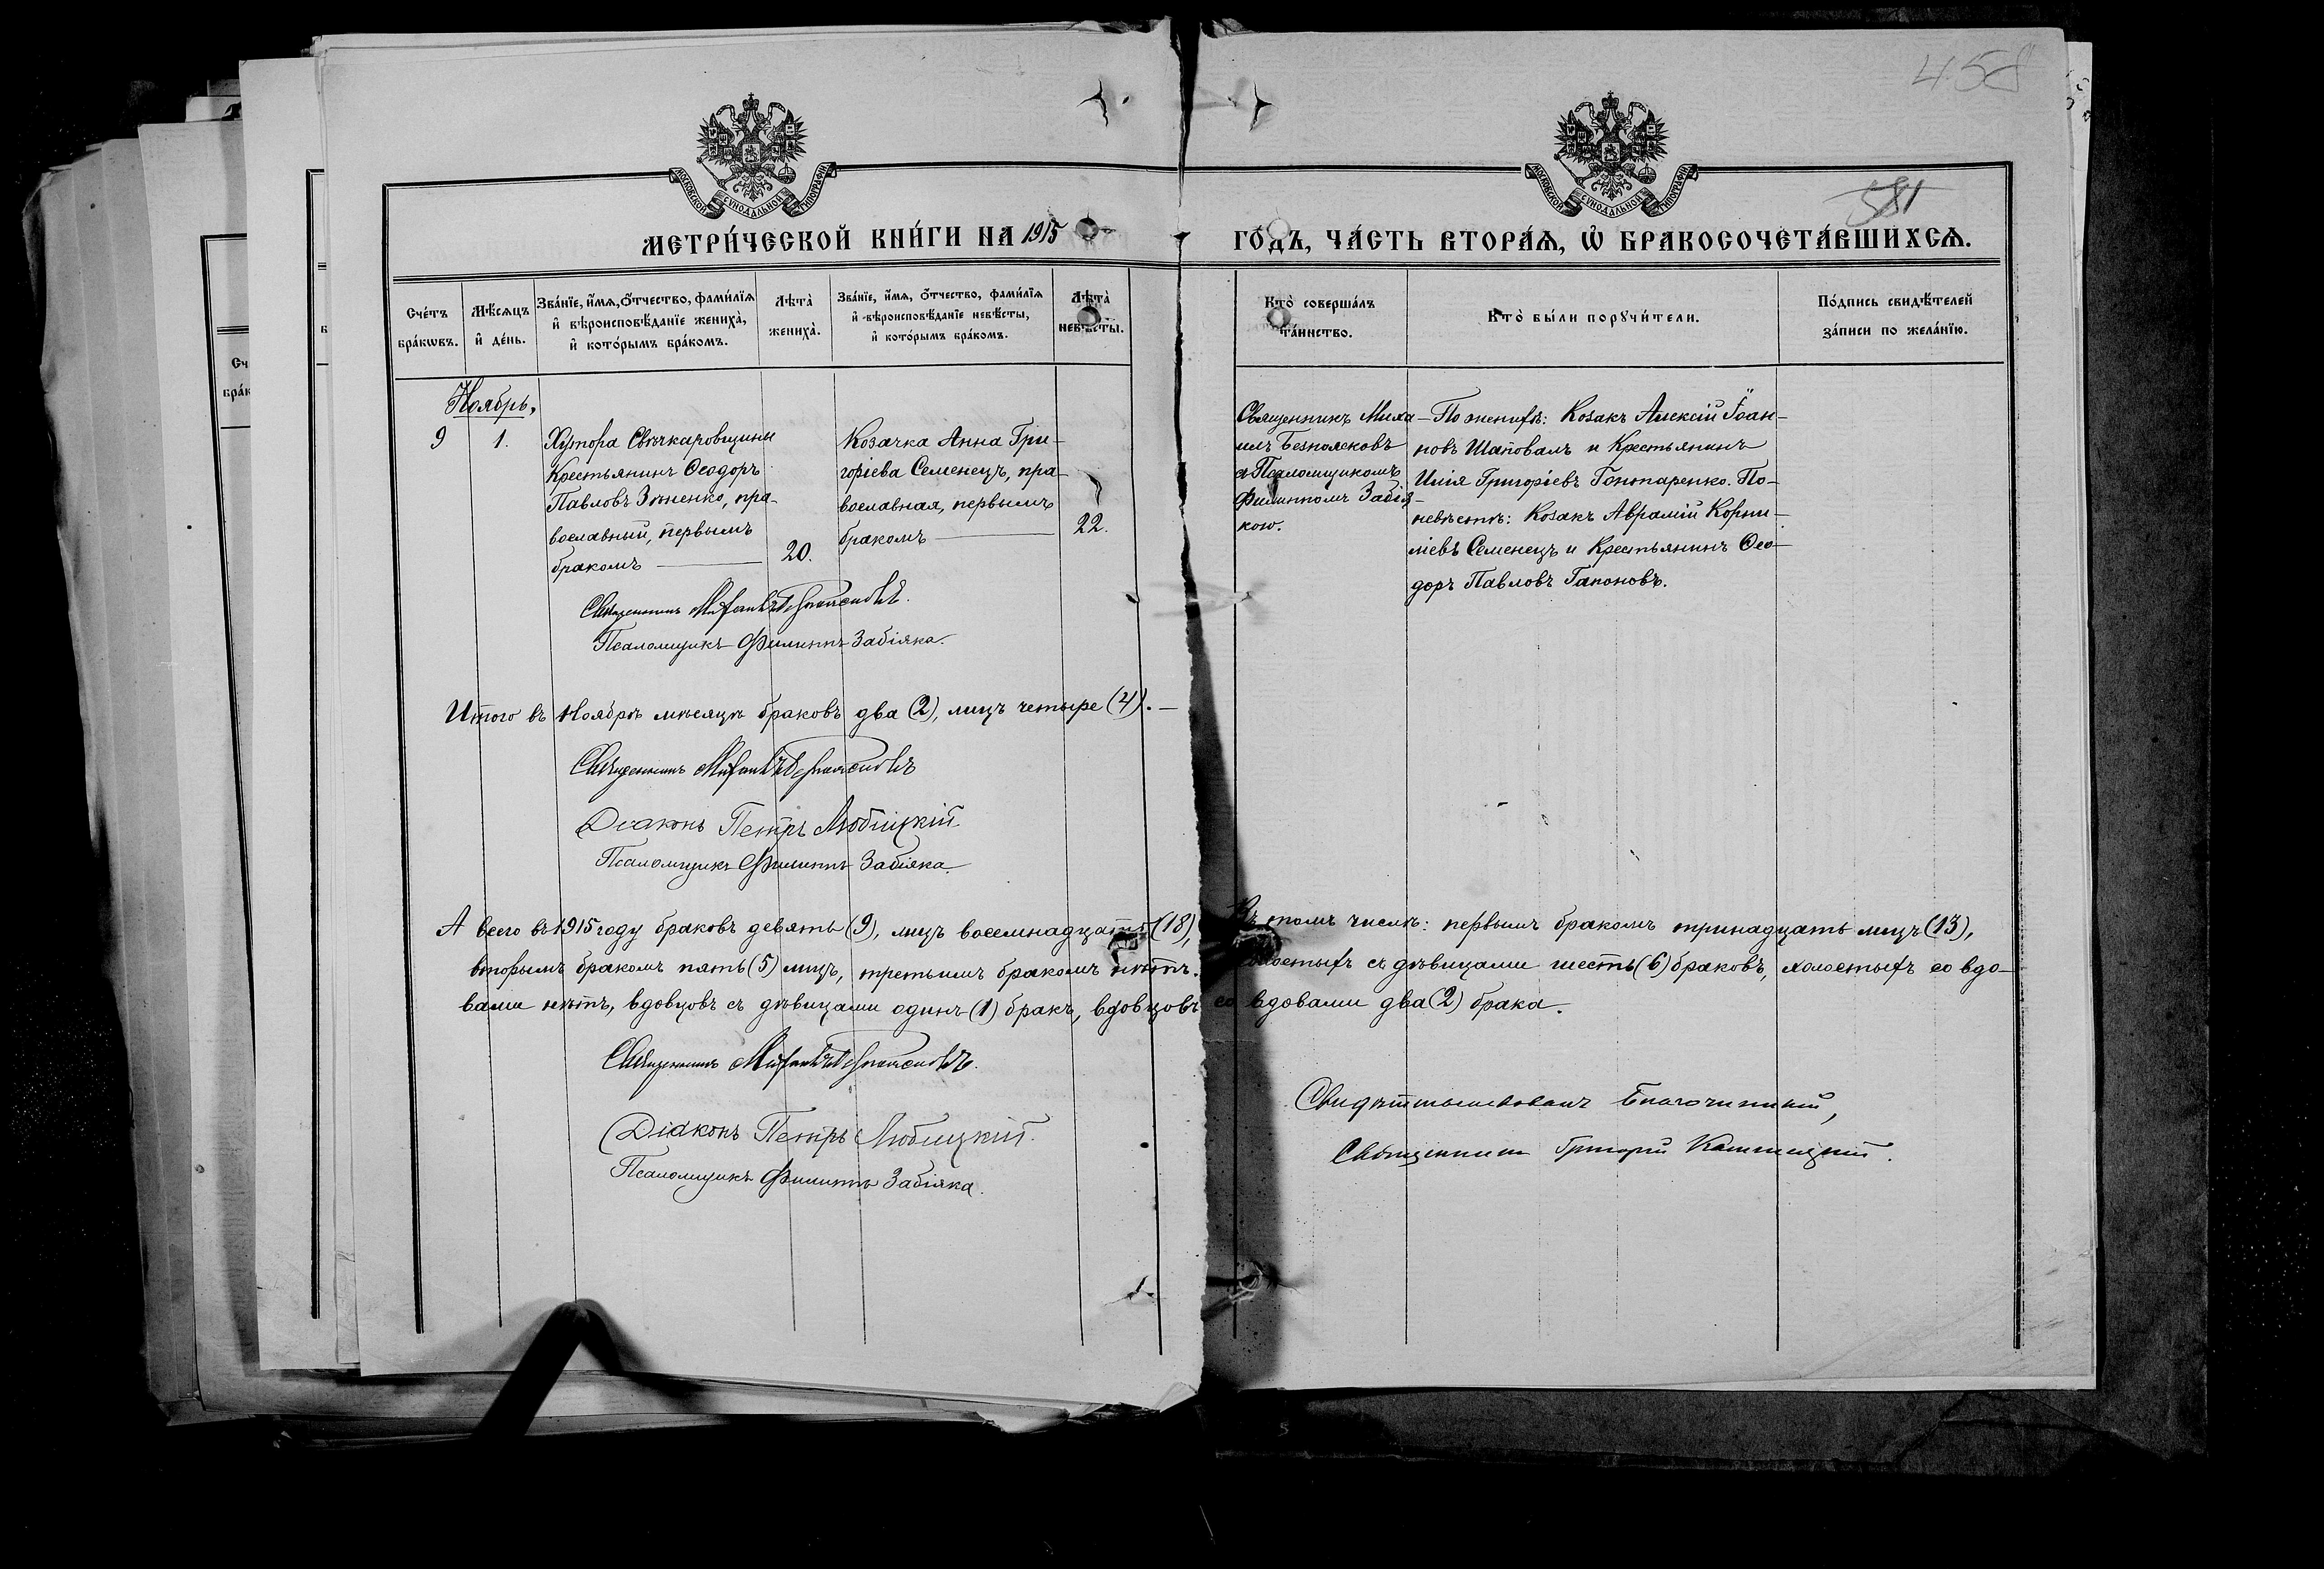 458
581
МОСКОВСКОЙ СУНОДАЛЬНОЙ ТИПОГРАФІИ
МОСКОВСКОЙ СУНОДАЛЬНОЙ ТИПОГРАФІИ
МЕТРИ́ЧЕСКОЙ КНИ́ГИ НА 1915
ГО́ДЪ, ЧА́СТЬ ВТОРА́Ѧ, Ѽ БРАКОСОЧЕТА́ВШИХСѦ.
Сче́тъ бра́кѡвъ.
Мѣ́сѧцъ и҆ де́нь.
Зва́нїе, и҆́мѧ, ѻ҆́тчество, фами́лїѧ и҆ вѣроисповѣ́данїе жениха̀, и҆ кото́рымъ бра́комъ.
Лѣта̀ жениха̀.
Зва́нїе, и҆́мѧ, ѻ҆́тчество, фами́лїѧ и҆ вѣроисповѣ́данїе невѣ́сты, и҆ кото́рымъ бра́комъ.
Лѣта̀ невѣ́сты.
Кто̀ соверша́лъ та́инство.
Кто̀ бы́ли порꙋчи́тели.
По́дпись свидѣ́телей за́писи по жела́нїю.
Ноябрь.
9
1.
Хутора Свѣчкаровщины
Крестьянинъ Ѳеодоръ
Павловъ Зѣненко, пра-
вославный, первымъ
бракомъ
20.
Козачка Анна Гри-
горіева Семенецъ, пра-
вославная, первымъ
бракомъ
22.
Священникъ Миха-
илъ Безпоясковъ
съ Псаломщикомъ
Филиппомъ Забія-
кою.
По женихѣ: Козакъ Алексій Іоан-
новъ Шаповалъ и Крестьянинъ
Илія Григоріевъ Гонтаренко. По-
невѣстѣ: Козакъ Аврамій Корни-
ліевъ Семенецъ и Крестьянинъ Ѳео-
доръ Павловъ Гапоновъ.
Священникъ Михаилъ Безпоясковъ.
Псаломщикъ Филиппъ Забіяка.
Итого въ Ноябрѣ мѣсяцѣ браковъ два (2), лицъ четыре (4).—
Священникъ Михаилъ Безпоясковъ
Діаконъ Петръ Любицкій
Псаломщикъ Филиппъ Забіяка.
А всего въ 1915 году браковъ девять (9), лицъ восемнадцать (18), Въ томъ числѣ: первымъ бракомъ тринадцать лицъ (13),
вторымъ бракомъ пять (5) лицъ, третьимъ бракомъ нѣтъ. Холостыхъ съ дѣвицами шесть (6) браковъ, холостыхъ со вдо-
вами нѣтъ, вдовцовъ съ дѣвицами одинъ (1) бракъ, вдовцовъ со вдовами два (2) брака.
Священникъ Михаилъ Безпоясковъ.
Діаконъ Петръ Любицкій.
Псаломщикъ Филиппъ Забіяка.
Свидѣтельствовалъ Благочинный,
Священникъ Григорій